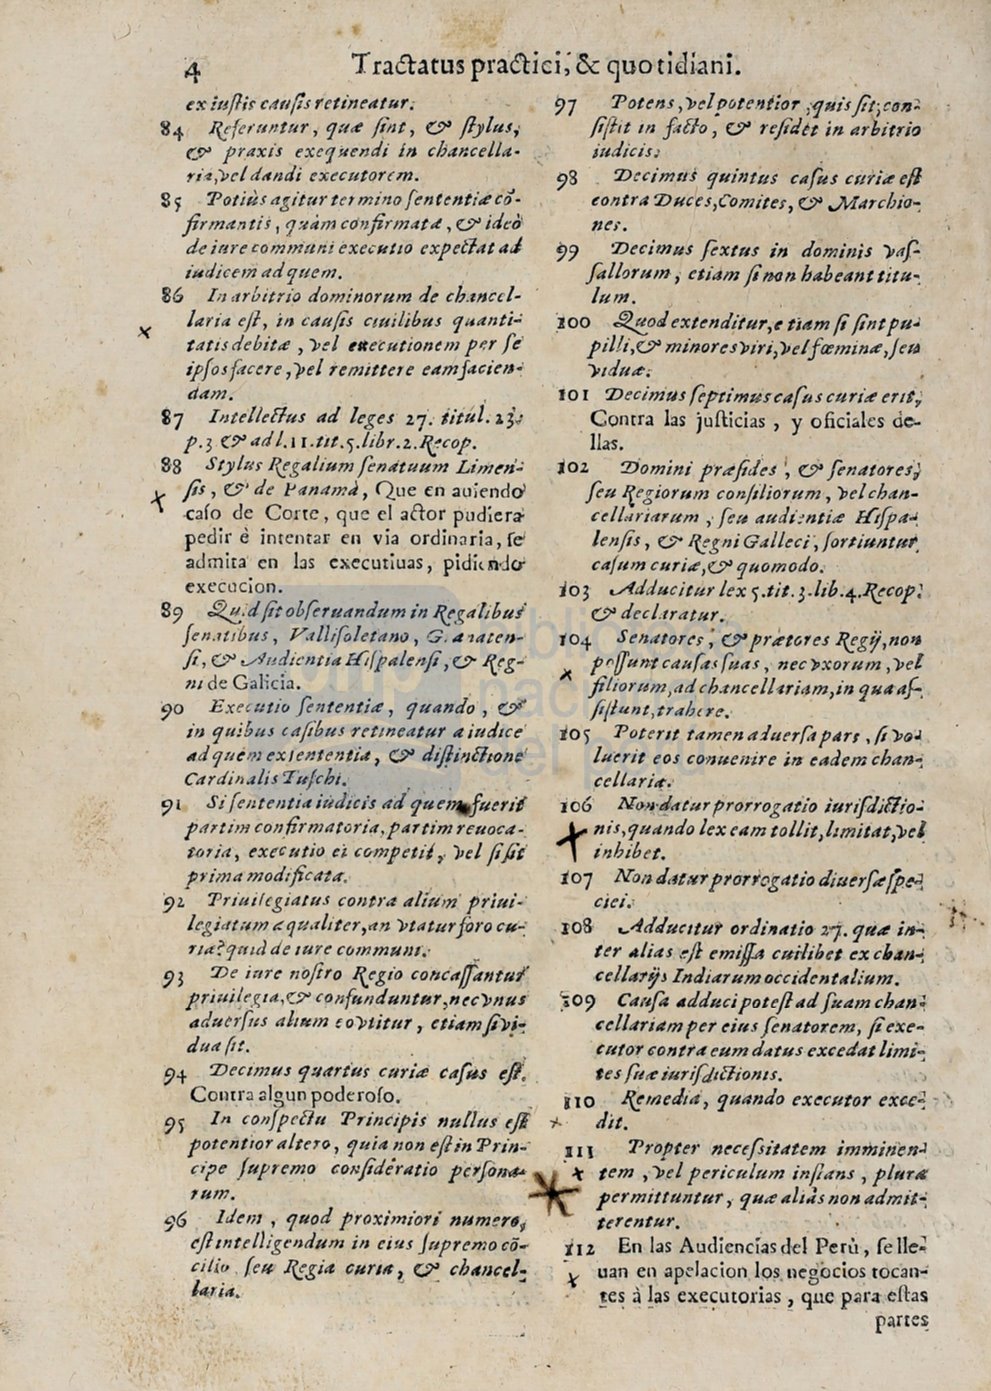 4 Tractatus practici, & quotidiani.
ex iustis causis retineatur.
84 Referuntur, quæ sint, & stylus,
& praxis exequendi in chancella-
ria, vel dandi executorem.
85 Potiùs agitur termino sententiæ cō-
firmantis, quàm confirmatæ, & ideò
de iure communi executio expectat ad
iudicem ad quem.
86 In arbitrio dominorum de chancel-
laria est, in causis ciuilibus quanti-
tatis debitæ, vel executionem per se
ipsos facere, vel remittere eam facien-
dam.
87 Intellectus ad leges 27. titul. 23.
p.3 & ad l.11.tit.5.libr.2.Recop.
88 Stylus Regalium senatuum Limen-
sis, & de Panamà, Que en auiendo
caso de Corte, que el actor pudiera
pedir è intentar en via ordinaria, se
admita en las executiuas, pidiendo
execucion.
89 Quid sit obseruandum in Regalibus
senatibus, Vallisoletano, Granaten-
si, & Audientia Hispalensi, & Reg-
ni de Galicia.
90 Executio sententiæ, quando, &
in quibus casibus retineatur a iudice
ad quem ex sententia, & distinctione
Cardinalis Tuschi.
91 Si sententia iudicis ad quem fuerit
partim confirmatoria, partim reuoca-
toria, executio ei competit, vel si sit
prima modificata.
92 Priuilegiatus contra alium priui-
legiatum æqualiter, an vtatur foro cu-
riæ? quid de iure communi.
93 De iure nostro Regio concassantur
priuilegia, & confunduntur, nec vnus
aduersus alium eo vtitur, etiam si vi-
dua sit.
94 Decimus quartus curiæ casus est.
Contra algun poderoso.
95 In conspectu Principis nullus est
potentior altero, quia non est in Prin-
cipe supremo consideratio persona-
rum.
96 Idem, quod proximiori numero,
est intelligendum in eius supremo cō-
cilio seu Regia curia, & chancel-
laria.
97 Potens, vel potentior, quis sit, con-
sistit in facto, & residet in arbitrio
iudicis.
98 Decimus quintus casus curiæ est
contra Duces, Comites, & Marchio-
nes.
99 Decimus sextus in dominis vas-
sallorum, etiam si non habeant titu-
lum.
100 Quod extenditur, etiam si sint pu-
pilli, & minores viri, vel fœminæ, seu
viduæ.
101 Decimus septimus casus curiæ erit,
Contra las justicias, y oficiales de-
llas.
102 Domini præsides, & senatores,
seu Regiorum consiliorum, vel chan-
cellariarum, seu audientiæ Hispa-
lensis, & Regni Galleci, sortiuntur
casum curiæ, & quomodo.
103 Adducitur lex 5.tit.3.lib.4.Recop.
& declaratur.
104 Senatores, & prætores Regij, non
possunt causas suas, nec vxorum, vel
filiorum, ad chancellariam, in qua as-
sistunt, trahere.
105 Poterit tamen aduersa pars, si vo-
luerit eos conuenire in eadem chan-
cellaria.
106 Non datur prorrogatio iurisdictio-
nis, quando lex eam tollit, limitat, vel
inhibet.
107 Non datur prorrogatio diuersæ spe-
ciei.
108 Adducitur ordinatio 27. quæ in-
ter alias est emissa cuilibet ex chan-
cellarijs Indiarum occidentalium.
109 Causa adduci potest ad suam chan-
cellariam per eius senatorem, si exe-
cutor contra eum datus excedat limi-
tes suæ iurisdictionis.
110 Remedia, quando executor exce-
dit.
111 Propter necessitatem imminen-
tem, vel periculum instans, plura
permittuntur, quæ aliàs non admit-
terentur.
112 En las Audiencias del Perù, se lle-
uan en apelacion los negocios tocan-
tes à las executorias, que para estas
partes